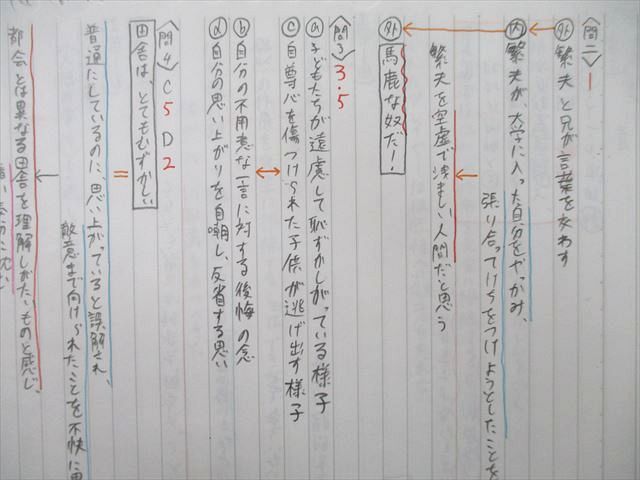 問二 1
外 繁夫と兄が言葉を交わす
内 繁夫が、大学に入った自分をやっかみ、
張り合ってけちをつけようとしたことを
繁夫を空虚で浅ましい人間だと思う
外 馬鹿な奴だ!
問3 3.5
ⓐ 子どもたちが遠慮して恥ずかしがっている様子
ⓒ 自尊心を傷つけられた子供が逃げ出す様子
ⓑ 自分の不用意な一言に対する後悔の念
ⓓ 自分の思い上がりを自嘲し、反省する思い
問4 C 5 D 2
田舎は、とてもむずかしい
普通にしているのに、思い上がっていると誤解され、
敵意まで向けられたことを不快に思
都会とは異なる田舎を理解しがたいものと感じ、